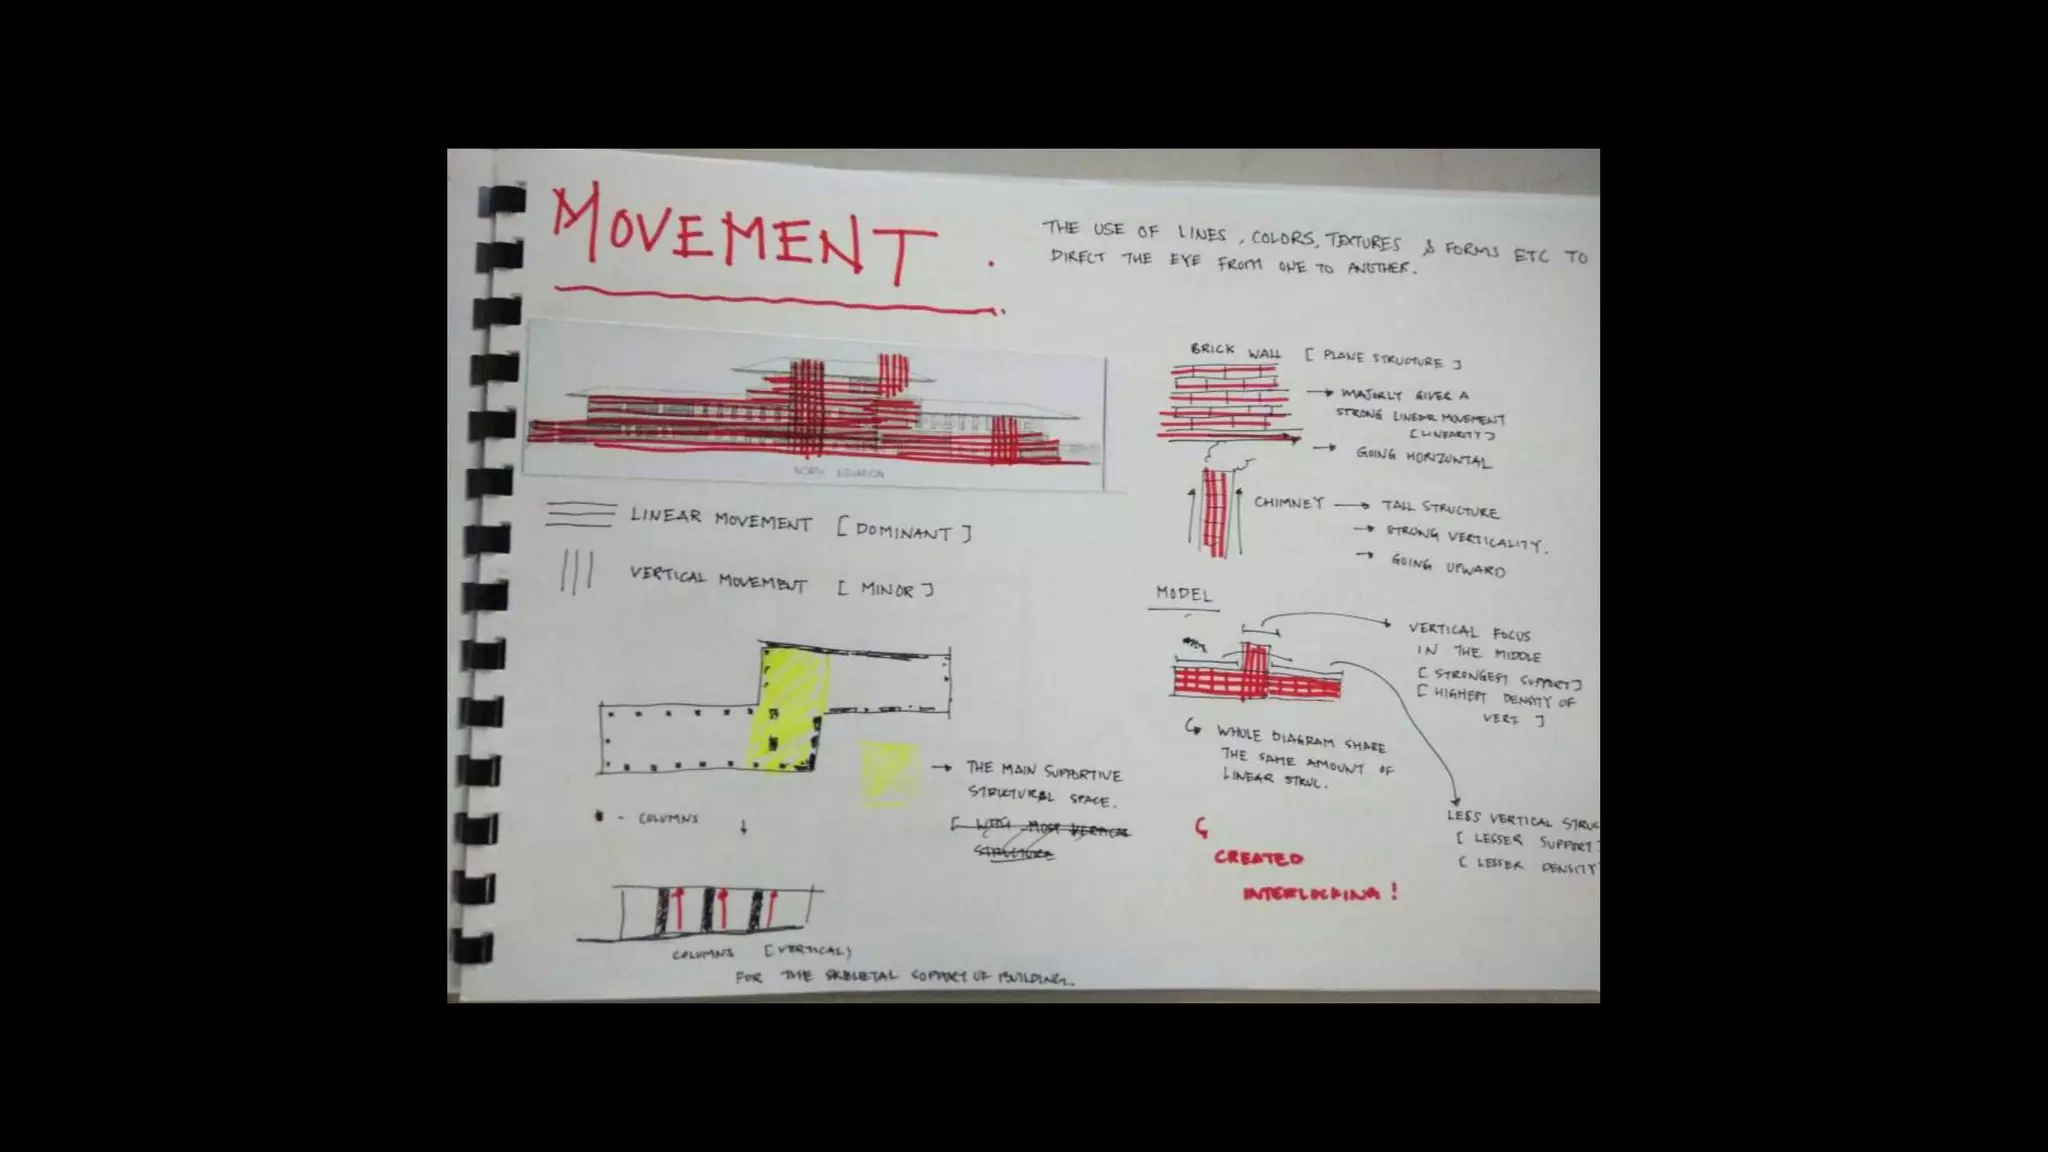 MOVEMENT.
THE USE OF LINES, COLORS, TEXTURES & FORMS ETC TO
DIRECT THE EYE FROM ONE TO ANOTHER.
NORTH ELEVATION
LINEAR MOVEMENT [DOMINANT]
VERTICAL MOVEMENT [MINOR]
BRICK WALL [PLANE STRUCTURE]
→ MAJORLY GIVES A
STRONG LINEAR MOVEMENT
[LINEARITY]
→ GOING HORIZONTAL
CHIMNEY → TALL STRUCTURE
→ STRONG VERTICALITY.
→ GOING UPWARD
MODEL
VERTICAL FOCUS
IN THE MIDDLE
[STRONGEST SUPPORT]
[HIGHEST DENSITY OF
VERT]
WHOLE DIAGRAM SHARE
THE SAME AMOUNT OF
LINEAR STRUC.
LESS VERTICAL STRUC
[LESSER SUPPORT]
[LESSER DENSITY
CREATED
INTERLOCKING!
→ THE MAIN SUPPORTIVE
STRUCTURAL SPACE.
MOST VERTICAL
STRUCTURE
- COLUMNS
COLUMNS [VERTICAL)
FOR THE SKELETAL SUPPORT OF BUILDING.